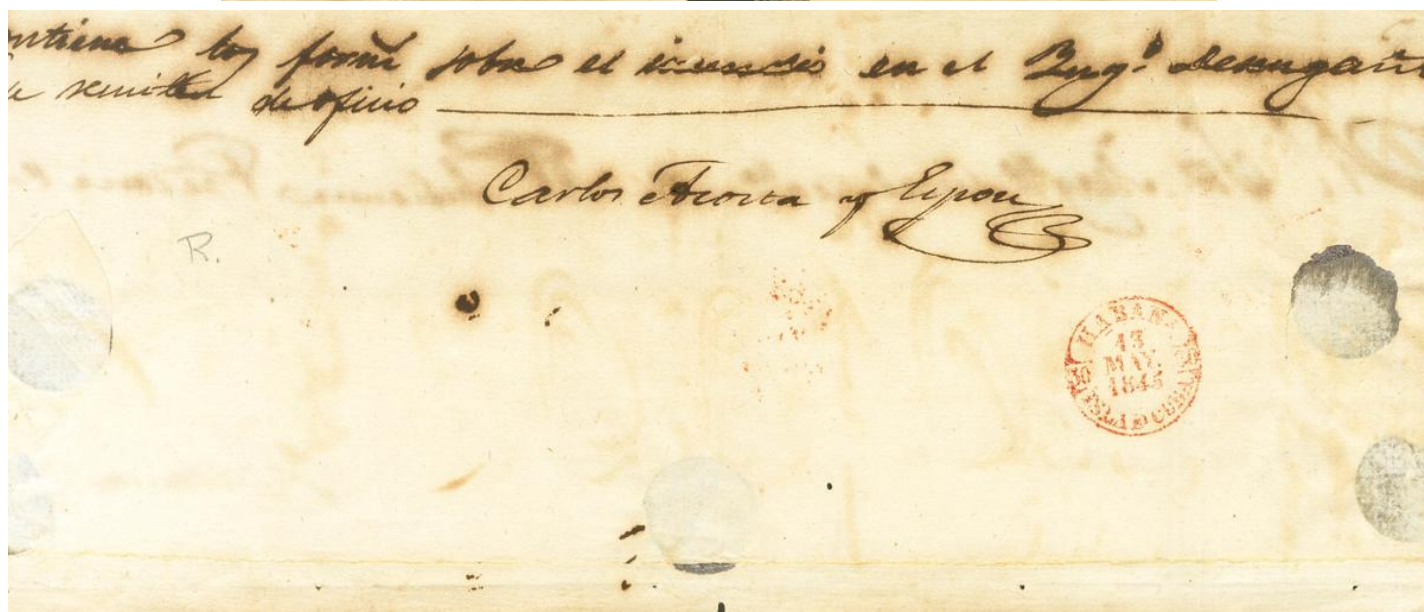 ntiene los form! sobre el incendio en el Yng.º Desengañ
se remiten de oficio
Carlos Acosta y
R.
HABANA
13
MAY.
1845
ISLA D CUBA